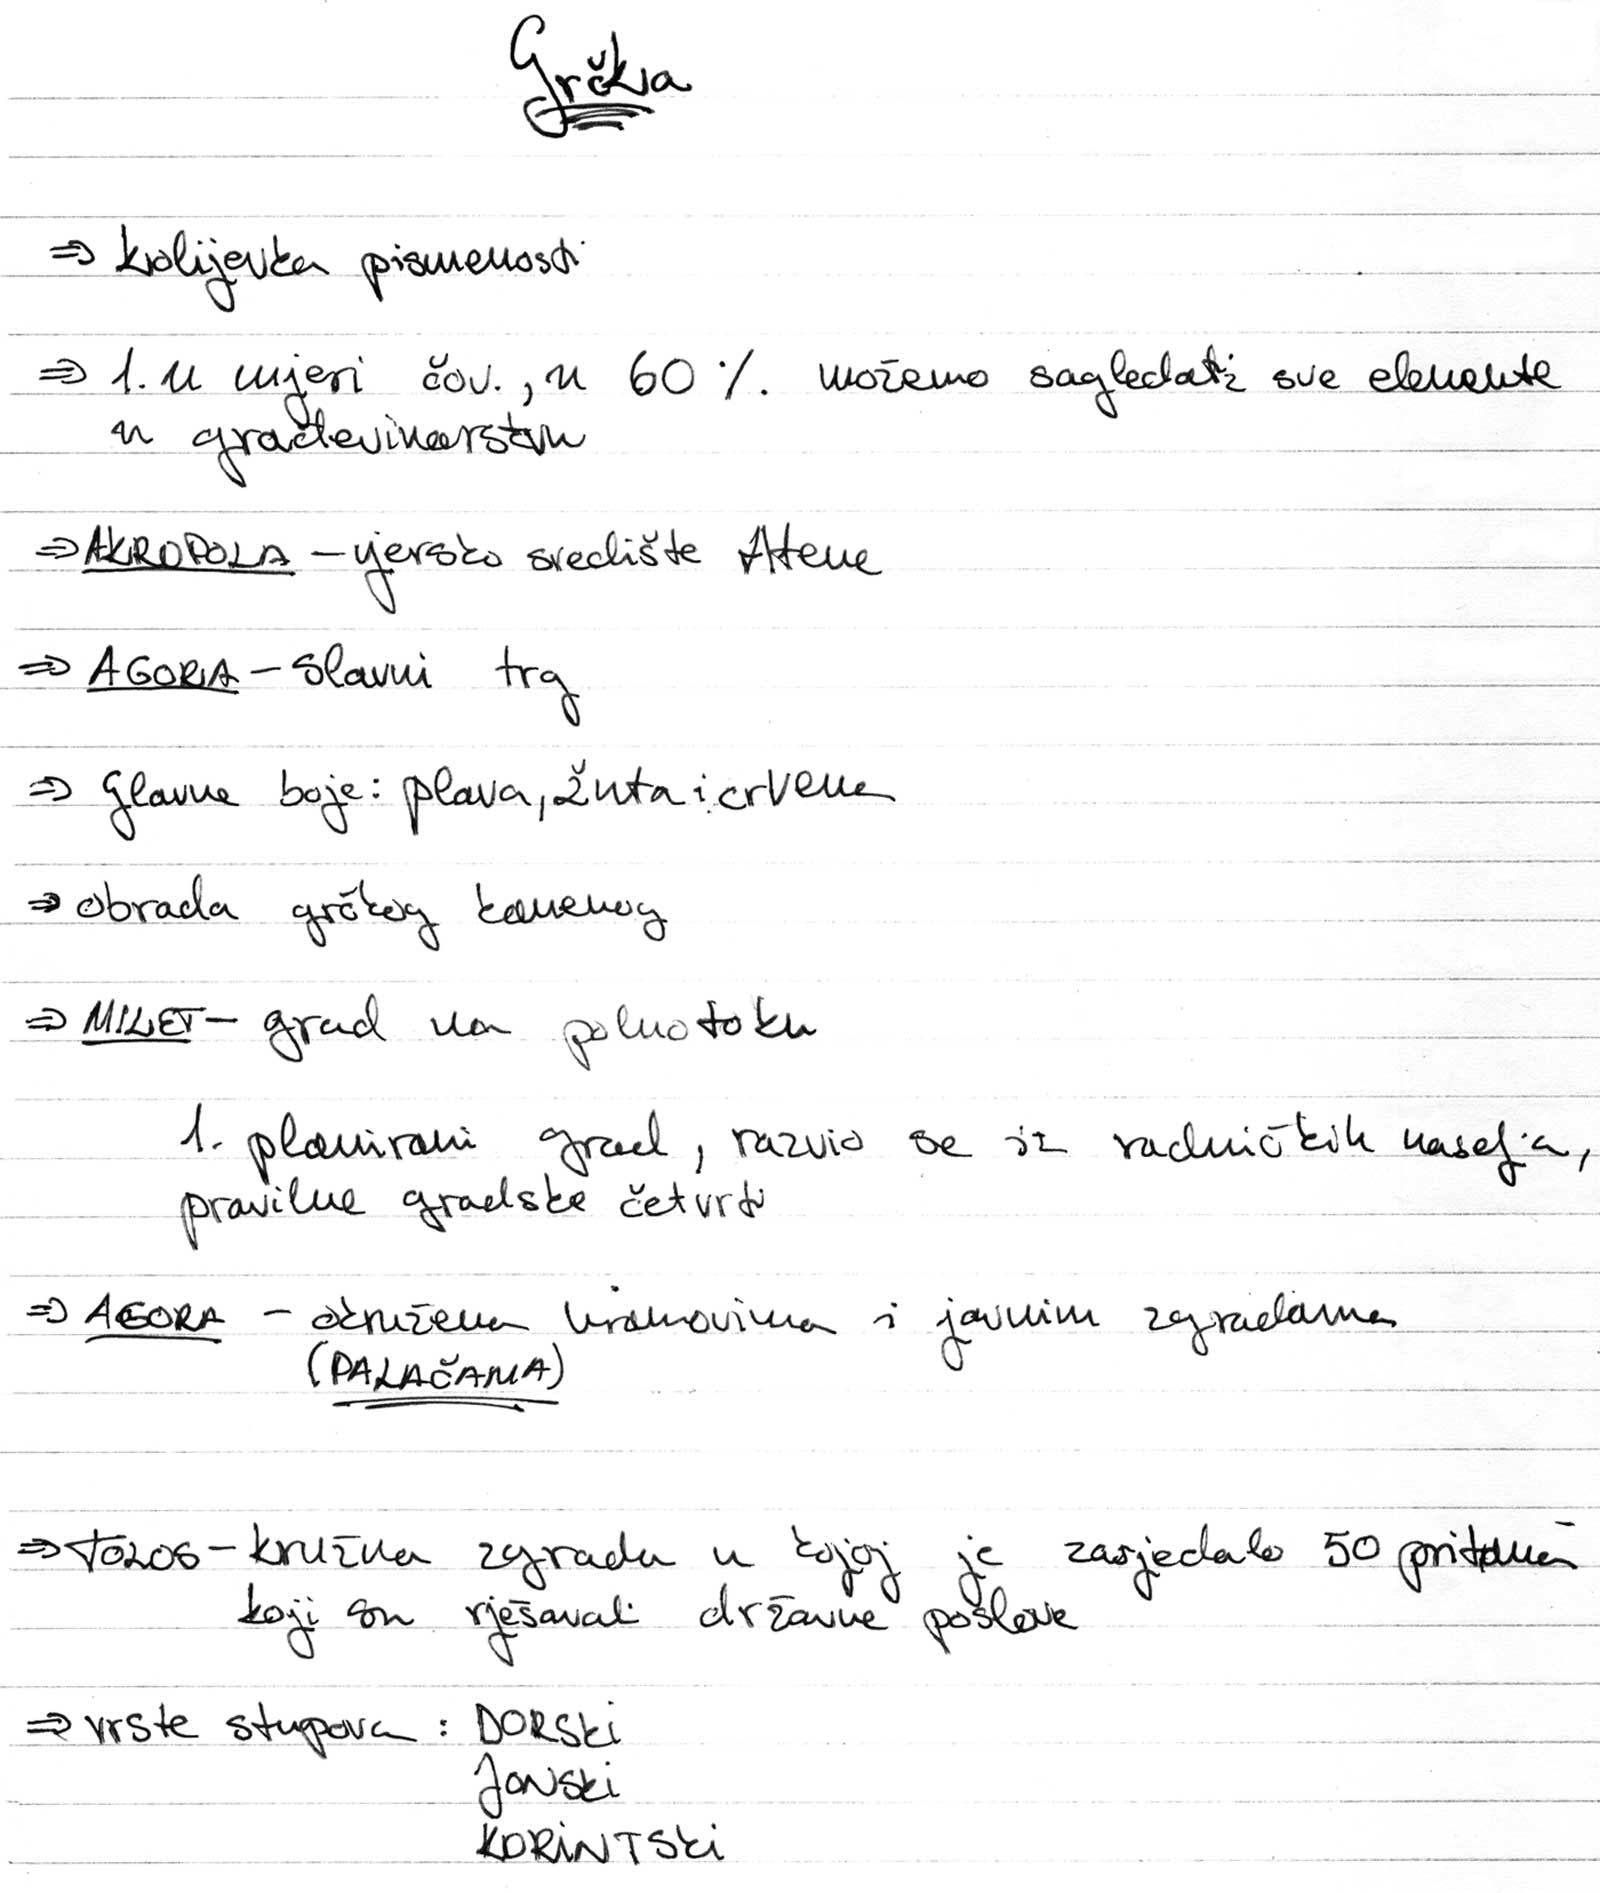 Grčka
⇒ kolijevka pismenosti
⇒ 1. u mjeri čov., u 60 %. možemo sagledati sve elemente
u građevinarstvu
⇒ AKROPOLA – vjersko središte Atene
⇒ AGORA – slavni trg
⇒ Glavne boje: plava, žuta i crvena
⇒ obrada grčkog kamenog
⇒ MILET – grad na poluotoku
1. planirani grad, razvio se iz radničkih naselja,
pravilne gradske četvrti
⇒ AGORA – okružena hramovima i javnim zgradama
(PALAČAMA)
⇒ TOLOS – kružna zgrada u kojoj je zasjedalo 50
koji su rješavali državne poslove
⇒ vrste stupova : DORSki
JONSki
KORiNTSki